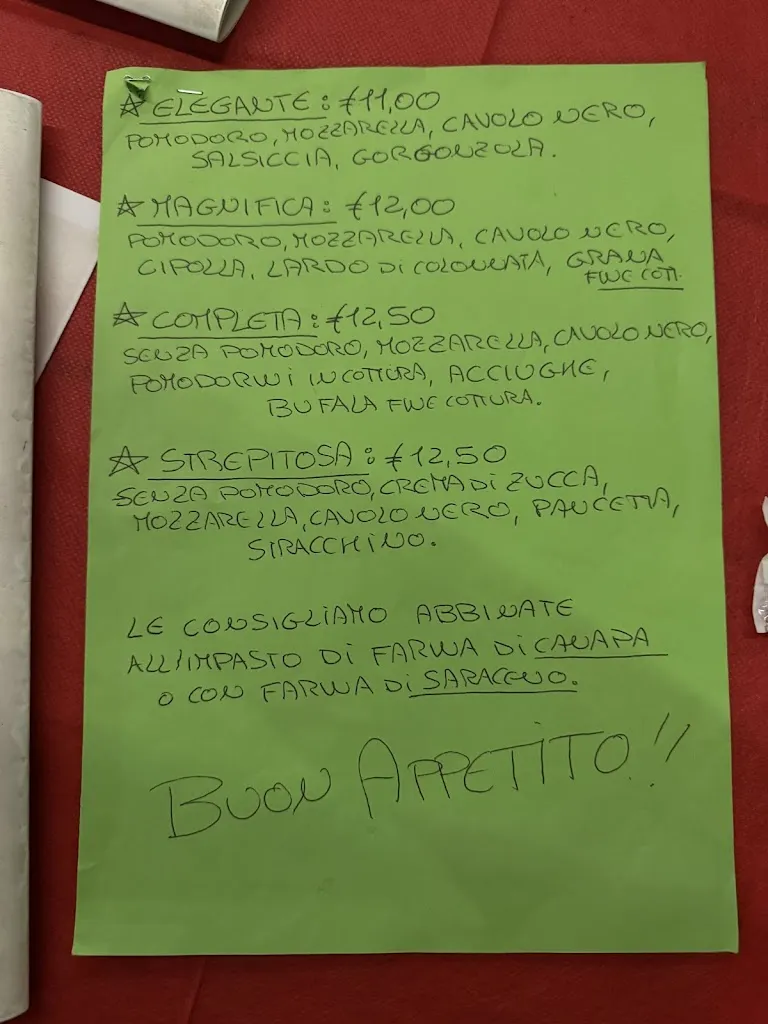 ☆ ELEGANTE: €11,00
POMODORO, MOZZARELLA, CAVOLO NERO,
SALSICCIA, GORGONZOLA.
☆ MAGNIFICA: €12,00
POMODORO, MOZZARELLA, CAVOLO NERO,
CIPOLLA, LARDO DI COLONNATA, GRANA
FINE COTT.
☆ COMPLETA: €12,50
SENZA POMODORO, MOZZARELLA, CAVOLO NERO,
POMODORINI IN COTTURA, ACCIUGHE,
BUFALA FINE COTTURA.
☆ STREPITOSA: €12,50
SENZA POMODORO, CREMA DI ZUCCA,
MOZZARELLA, CAVOLO NERO, PANCETTA,
STRACCHINO.
LE CONSIGLIAMO ABBINATE
ALL'IMPASTO DI FARINA DI CANAPA
O CON FARINA DI SARACENO.
BUON APPETITO!!